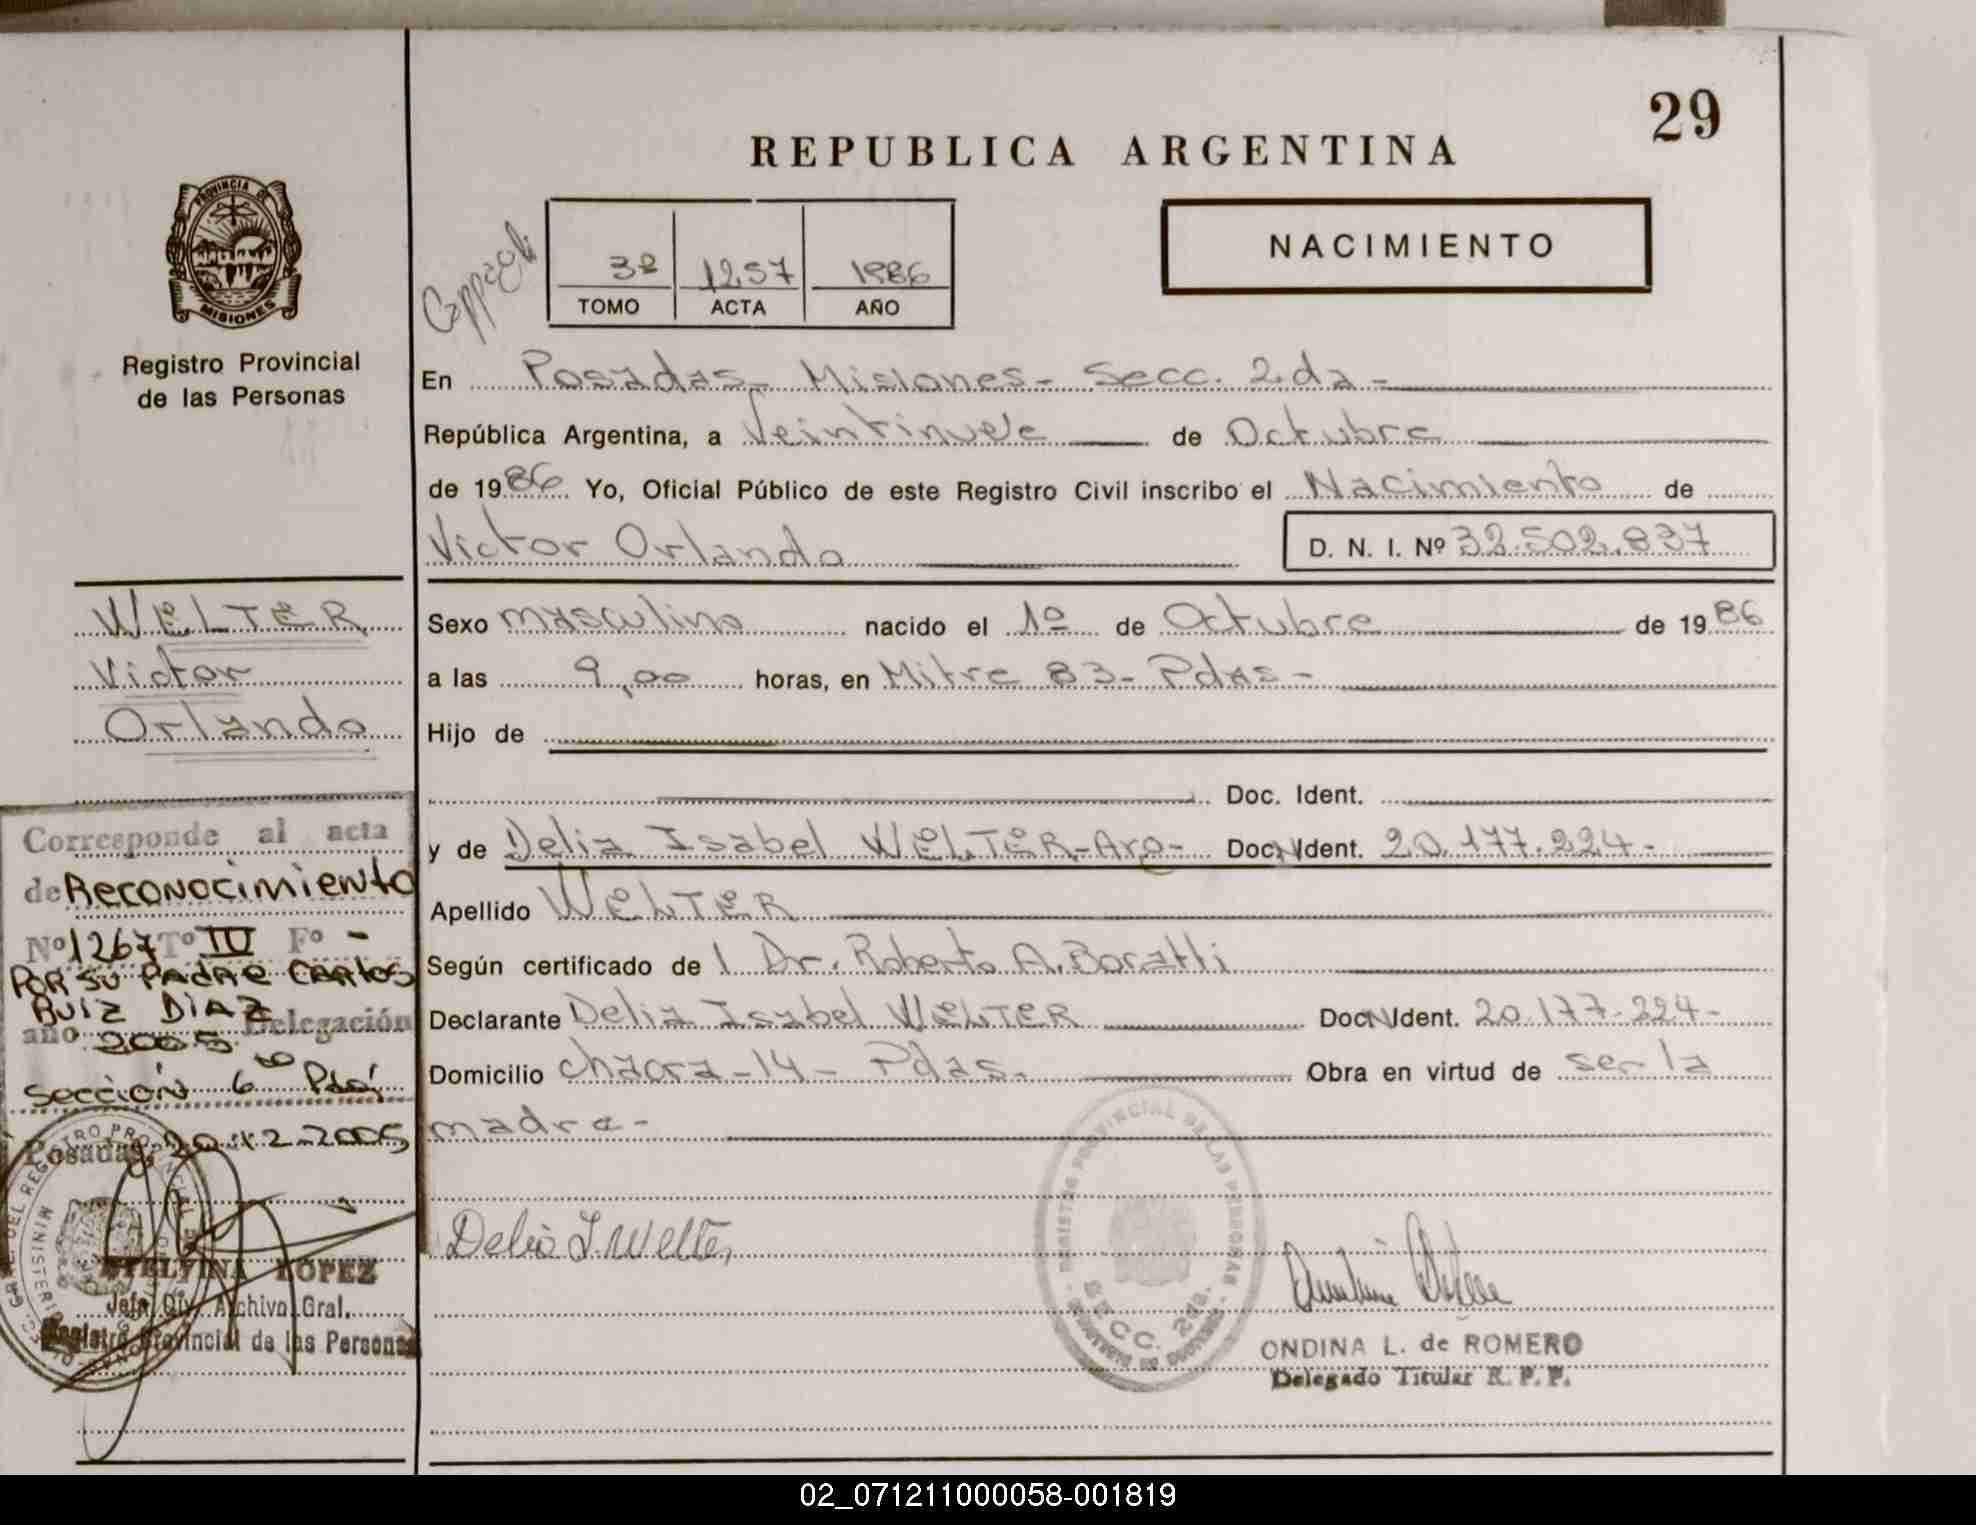 29
REPUBLICA ARGENTINA
PROVINCIA DE
MISIONES
Registro Provincial
de las Personas
3º 1257 1986
TOMO ACTA AÑO
NACIMIENTO
En Posadas - Misiones - Secc. 2da -
República Argentina, a Veintinueve de Octubre
de 1986 Yo, Oficial Público de este Registro Civil inscribo el Nacimiento de
Victor Orlando D. N. I. Nº 32.502.837
WELTER
Victor
Orlando
Sexo masculino nacido el 1º de Octubre de 1986
a las 9,00 horas, en Mitre 83 - Pdas -
Hijo de
Doc. Ident.
y de Delia Isabel WELTER - Arg - Doc. Ident. 20.177.224 -
Apellido WELTER
Según certificado de Dr. Roberto A. Boratti
Declarante Delia Isabel WELTER Doc. Ident. 20.177.224 -
Domicilio chacra - 14 - Pdas. Obra en virtud de ser la
madre -
Corresponde al acta
de Reconocimiento
Nº 1267 Tº III Fº -
POR SU PADRE CARLOS
RUIZ DIAZ
año 2005 Delegación
Sección 6
Posadas, 20 12 2005
Delia I. Welter
REGISTRO PROVINCIAL DE LAS PERSONAS
SECC. 2da.
ETELVINA LOPEZ
Jefa Div. Archivo Gral.
Registro Provincial de las Personas
ONDINA L. de ROMERO
Delegado Titular R. P. P.
02_071211000058-001819